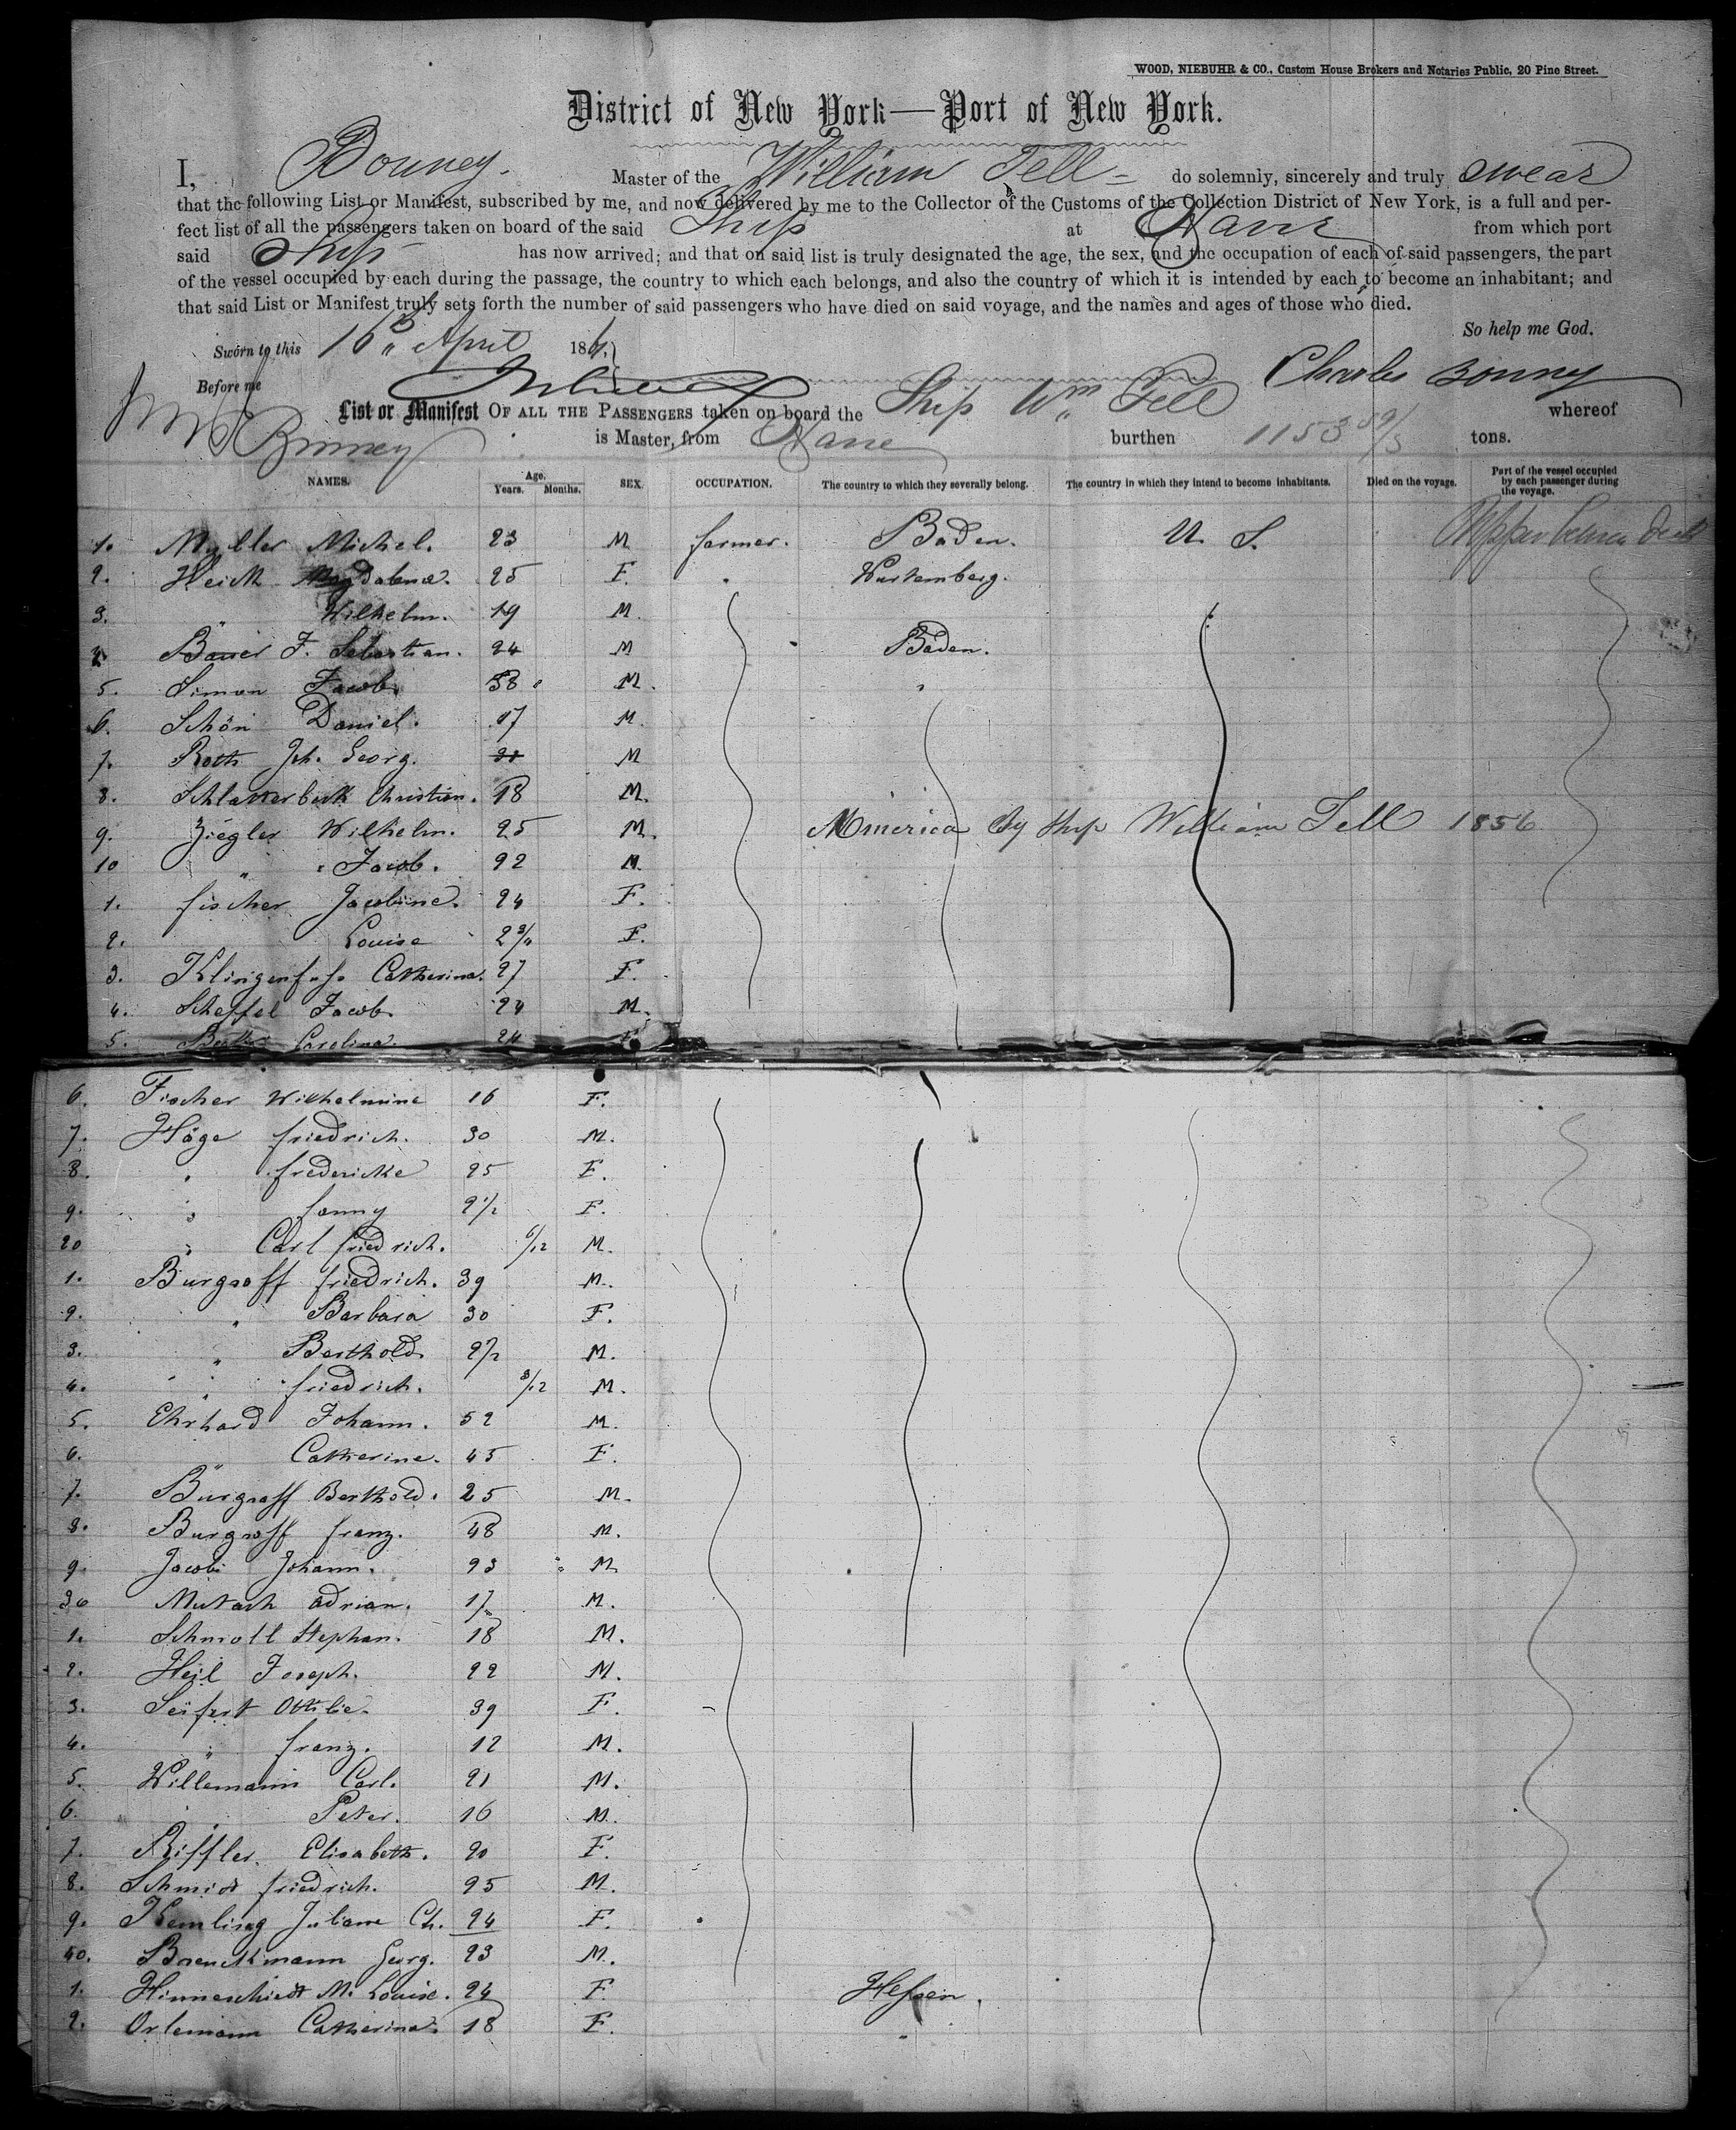 WOOD, NIEBUHR & CO., Custom House Brokers and Notaries Public, 20 Pine Street.
District of New York—Port of New York.
I, Bonney. Master of the William Tell do solemnly, sincerely and truly swear
that the following List or Manifest, subscribed by me, and now delivered by me to the Collector of the Customs of the Collection District of New York, is a full and per-
fect list of all the passengers taken on board of the said Ship at Havre from which port
said Ship has now arrived; and that on said list is truly designated the age, the sex, and the occupation of each of said passengers, the part
of the vessel occupied by each during the passage, the country to which each belongs, and also the country of which it is intended by each to become an inhabitant; and
that said List or Manifest truly sets forth the number of said passengers who have died on said voyage, and the names and ages of those who died.
So help me God.
Sworn to this 16 April 186
Before me Charles Bonney
List or Manifest OF ALL THE PASSENGERS taken on board the Ship Wm Tell whereof
Bonney is Master, from Havre burthen 1153 tons.
NAMES. Age. Years. Months. SEX. OCCUPATION. The country to which they severally belong. The country in which they intend to become inhabitants. Died on the voyage. Part of the vessel occupied by each passenger during the voyage.
1. Myller Michel. 23 M farmer. Baden. U. S. Upper between deck
2. Heick Magdalena. 25 F. Wurtemberg.
3. " Wilhelm. 19 M.
4. Bauer F. Sebastian. 24 M Baden.
5. Simon Jacob. 38 M. "
6. Schön Daniel. 17 M.
7. Roth Joh. Georg. M
8. Schlatterbeck Christian. 18 M.
9. Ziegler Wilhelm. 25 M. America By Ship William Tell 1856
10 " Jacob. 22 M.
1. Fischer Jacobine. 24 F.
2. Louise 2 F.
3. Klingenfuss Catherina. 27 F.
4. Scheffel Jacob. 24 M.
5. Carolina. 24
6. Fischer Wilhelmine 16 F.
7. Häge friedrich. 30 M.
8. " fredericke 25 F.
9. " fanny 2 1/2 F.
20 " Carl friedrich. 6/12 M.
1. Burgraff friedrich. 39 M.
2. " Barbara 30 F.
3. " Berthold. M.
4. " friedrich. 8/12 M.
5. Ehrhard Johann. 52 M.
6. " Catherine. 45 F.
7. Burgraff Berthold. 25 M.
8. Burgraff franz. 48 M.
9. Jacobi Johann. 23 M
30 Mutach Adrian. 17 M.
1. Schmoll Stephan. 18 M.
2. Heil Joseph. 22 M.
3. Seifert Ottilie. 39 F.
4. " franz. 12 M.
5. Willemann Carl. 21 M.
6. " Peter. 16 M.
7. Riffler Elisabeth. 20 F.
8. Schmidt friedrich. 25 M.
9. Juliane Ch. 24 F.
40. Brenckmann Georg. 23 M.
1. Hinnerschiedt M. Louise. 24 F. Hessen.
2. Orlemann Catherina. 18 F. "